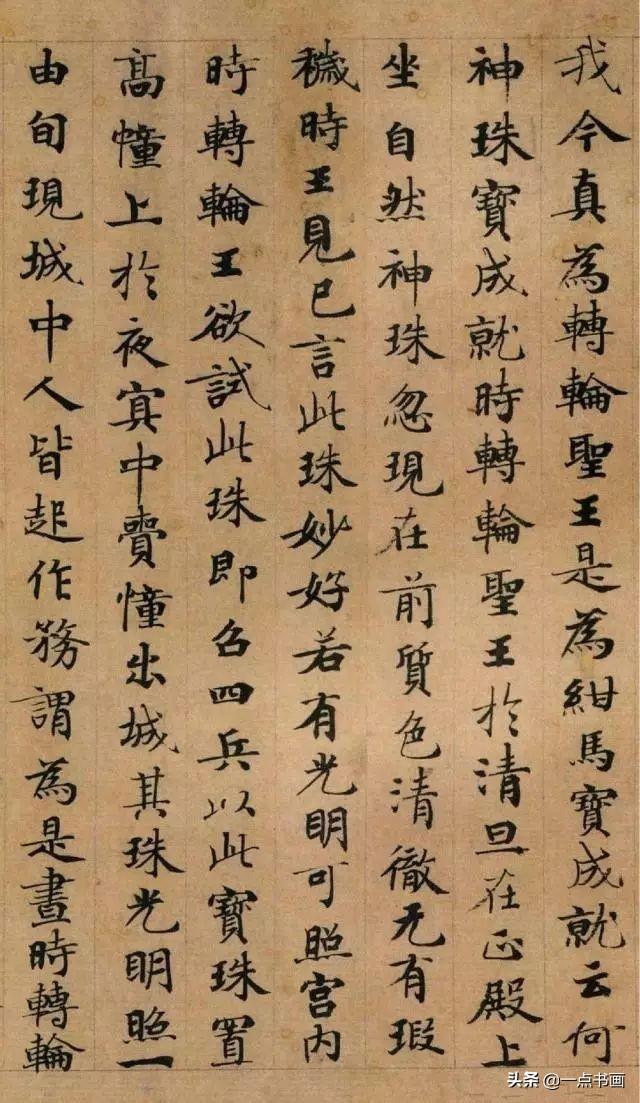 我今真為轉輪聖王是為紺馬寶成就云何
神珠寶成就時轉輪聖王於清旦在正殿上
坐自然神珠忽現在前質色清徹无有瑕
穢時王見已言此珠妙好若有光明可照宮内
時轉輪王欲試此珠即召四兵以此寶珠置
高幢上於夜冥中賷幢出城其珠光明照一
由旬現城中人皆起作務謂為是晝時轉輪
头条 @一点书画